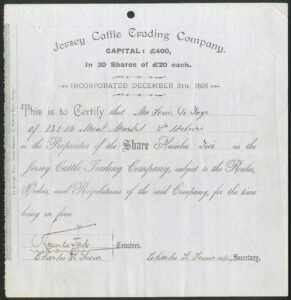 Jersey Cattle Trading Company.
CAPITAL: £400,
In 20 Shares of £20 each.
INCORPORATED DECEMBER 8TH. 1808
This is to Certify that
of 13 & 14 Meat Market St Heliers
is the Proprietor of the Share Number Two in the
Jersey Cattle Trading Company, subject to the Rules,
Orders, and Regulations of the said Company, for the time
being in force
Trustees.
Charles
Charles Secretary.